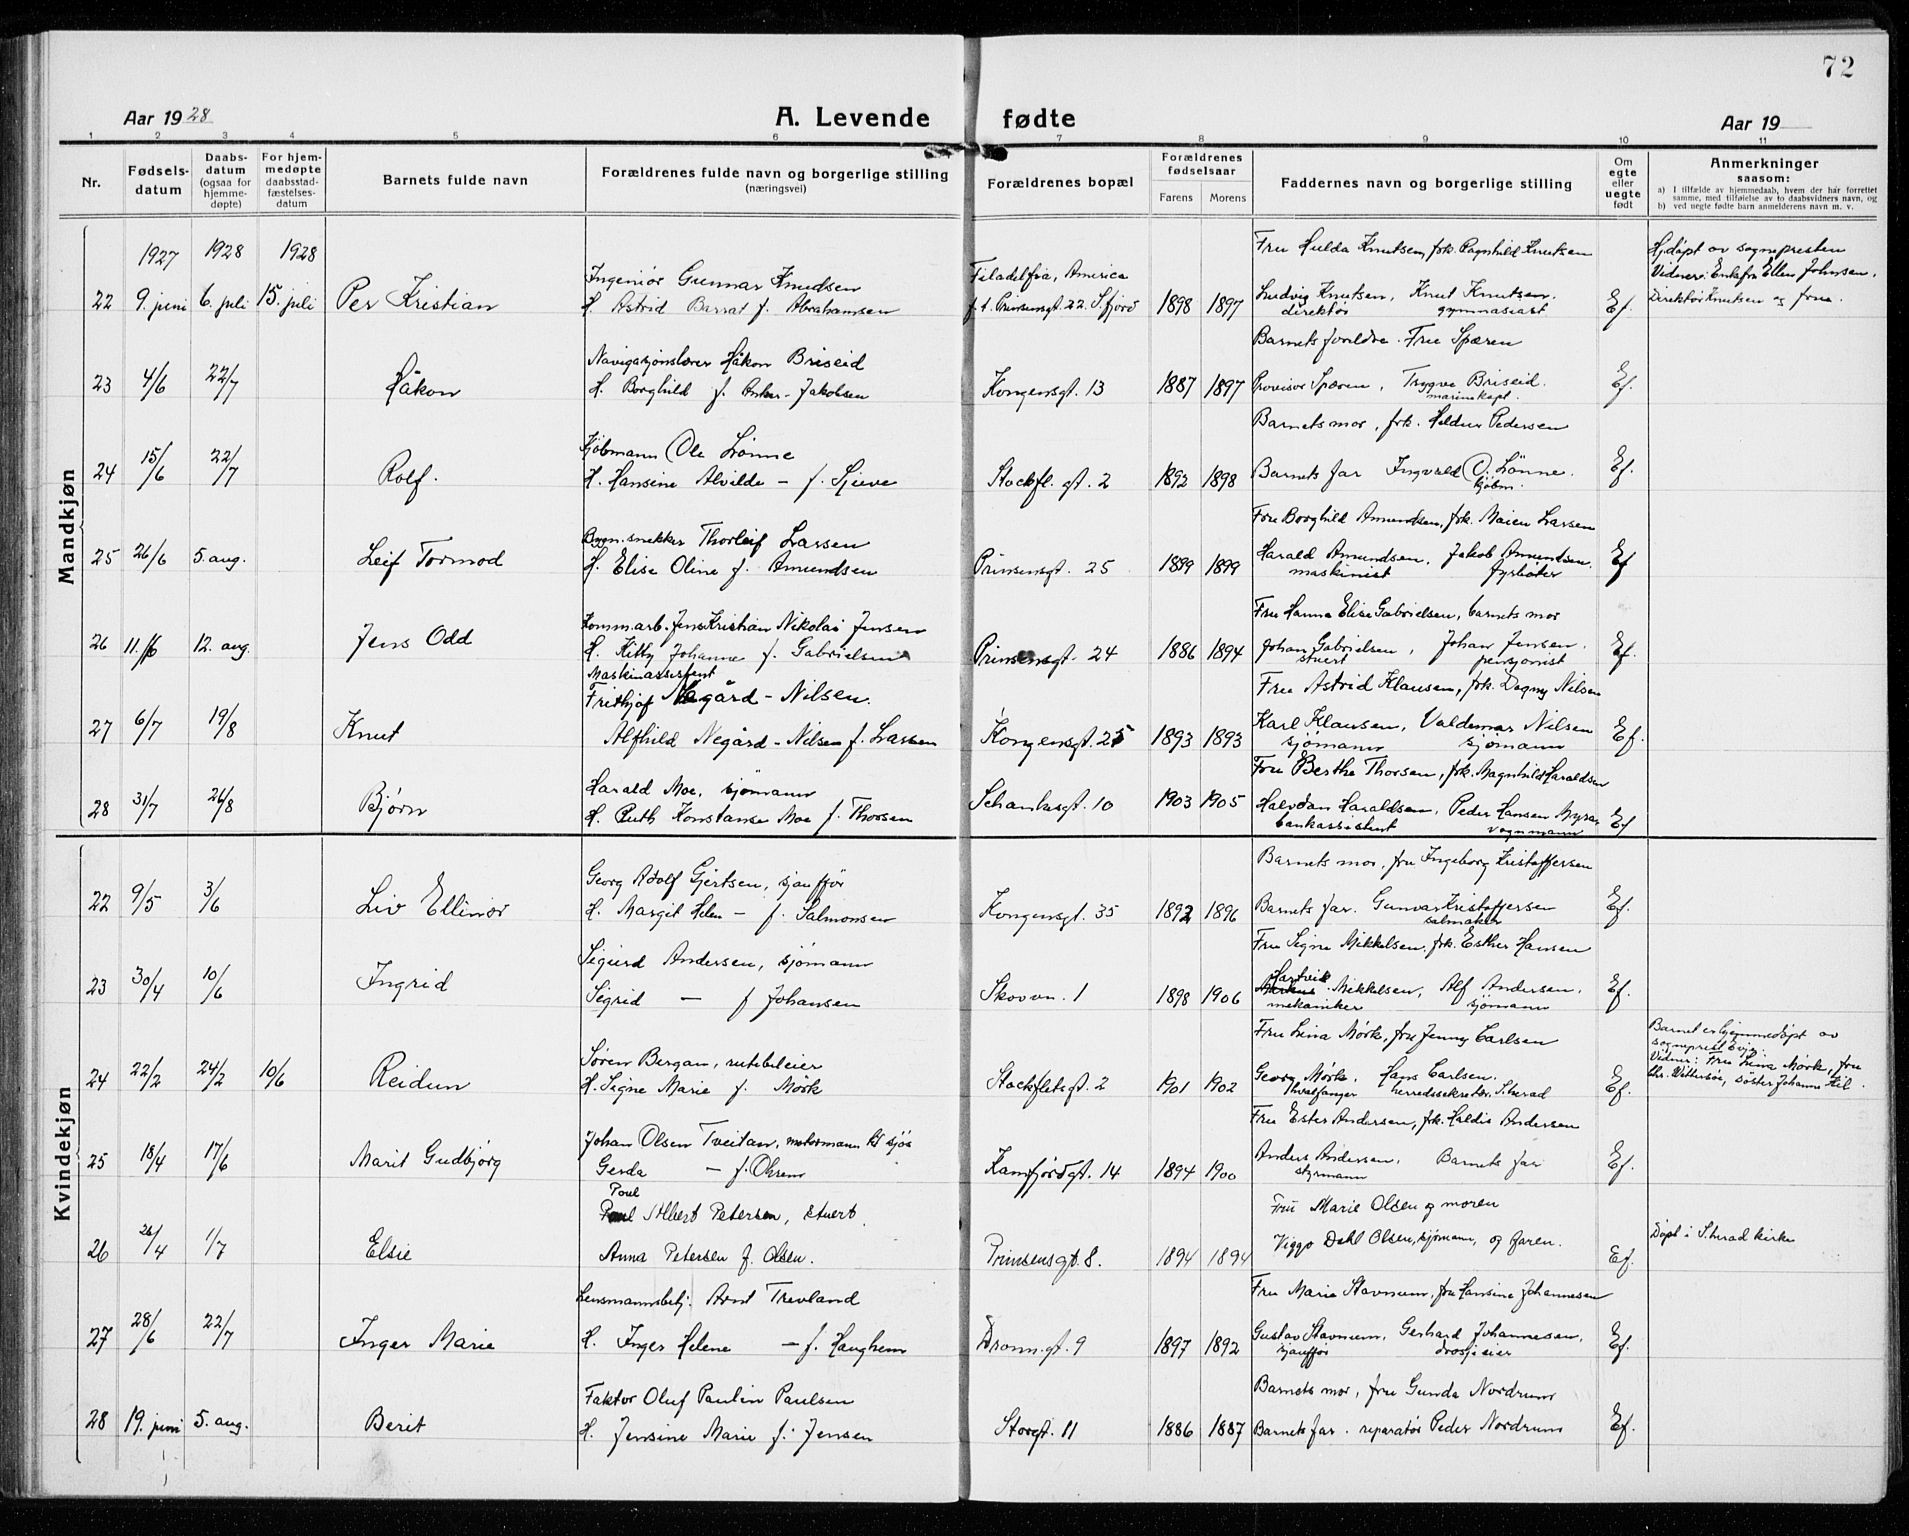 72
Aar 1928 A. Levende fødte Aar 19
1 2 3 4 5 6 7 8 9 10 11
Nr. Fødsels-datum Daabs-datum (ogsaa for hjemme-døpte) For hjem-medøpte daabsstad-fæstelses-datum Barnets fulde navn Forældrenes fulde navn og borgerlige stilling (næringsvei) Forældrenes bopæl Forældrenes fødselsaar Farens Morens Faddernes navn og borgerlige stilling Om egte eller uegte født Anmerkninger saasom: a) I tilfælde av hjemmedaab, hvem der har forrettet samme, med tilføielse av to daabsvidners navn, og b) ved uegte fødte barn anmelderens navn m. v.
Mandkjøn
1927 1928 1928 Fru Hulda Knutsen, frk. Ragnhild Knutsen Hjdøpt av sognepresten
Ingeniør Gunnar Knudsen Filadelfia, America Vidner: Enkefru Ellen Johnsen,
22 9. juni 6. juli 15. juli Per Kristian H. Astrid Barrat f. Abrahamsen f. t. Prinsensgt. 22. S.fjord 1898 1897 Ludvig Knutsen, Knut Knutsen. Ef. Direktør Knutsen og frue.
direktør gymnasiast
Navigasjonslærer Håkon Briseid Barnets foreldre. Fru Spæren
23 4/6 22/7 Håkon H. Borghild f. Anker-Jakobsen Kongensgt. 13 1887 1897 Provisor Spæren, Trygve Briseid. Ef.
marinekapt.
Kjøbmann Ole Lønne Barnets mor, frk. Heldur Pedersen
24 15/6 22/7 Rolf. H. Hansine Alvilde – f. Sjueve Stockfl. gt. 2 1892 1898 Barnets far Ingvald O. Lønne. Ef.
kjøbm.
Bygn.snekker Thorleif Larssen Fru Borghild Amundsen, frk. Maien Larssen
25 26/6 5. aug. Leif Tormod H. Elise Oline f. Amundsen Prinsensgt. 25 1899 1899 Harald Amundsen, Jakob Amundsen. Ef
maskinist fyrbøter
Komm.arb. Jens Kristian Nikolai Jensen Fru Hanna Elise Gabrielsen, barnets mor
26 11./6 12. aug. Jens Odd H. Kitty Johanne f. Gabrielsen Prinsensgt. 24 1886 1894 Johan Gabrielsen, Johan Jensen. Ef.
stuert pensjonist
Maskinassistent
Frithjof Negård-Nilsen. Fru Astrid Klausen, frk. Dagny Nilsen
27 6/7 19/8 Knut Alfhild Negård-Nilsen f. Larsen Kongensgt. 25 1893 1893 Karl Klausen, Valdemar Nilsen Ef.
sjømann sjømann
Harald Moe, sjømann Fru Berthe Thorsen, frk. Magnhild Haraldsen
28 31/7 26/8 Bjørn H. Ruth Konstanse Moe f. Thorsen Schankesgt. 10 1903 1905 Halvdan Haraldsen, Peder Hansen Myra Ef
bankassistent vognmann
Kvindekjøn
Georg Adolf Gjertsen, sjauffør Barnets mor, fru Ingeborg Kristoffersen
22 9/5 3/6 Liv Ellinor H. Margit Helen – f. Salmonsen Kongensgt. 35 1892 1896 Barnets far. Gunvar Kristoffersen Ef.
salmaker
Sigurd Andersen, sjømann Fru Signe Mikkelsen, frk. Esther Hansen
23 30/4 10/6 Ingrid Sigrid – f Johansen Skovvn. 1 1898 1906 Hartvik Mikkelsen, Alf Andersen. Ef.
mekaniker sjømann
Søren Bergan, rutebileier Fru Lina Mørk, fru Jenny Carlsen Barnet er hjemmedøpt av sogneprest
24 22/2 24/2 10/6 Reidun H. Signe Marie f. Mørk Stockfletsgt. 2 1901 1902 Georg Mørk. Hans Carlsen. Ef. Vidner: Fru Lina Mørk, fru
hvalfanger herredssekretær S.herad Chr. Wittersøe, søster Johanne Lil.
Johan Olsen Tveitan, motormann til sjøs Fru Ester Andersen, frk. Haldis Andersen
25 18/4 17/6 Marit Gudbjørg Gerda – f. Ohrem Kamfjordgt. 14 1894 1900 Anders Andersen, Barnets far Ef.
styrmann
Poul
Albert Petersen, stuert Fru Marie Olsen og moren
26 26/4 1/7 Elsie Anna Petersen f. Olsen. Prinsensgt. 8. 1894 1894 Viggo Dahl Olsen, sjømann, og faren. Ef. Døpt i S.herad kirke
Lensmannsbetj. Arnt Trevland Fru Marie Stavnum, fru Hansine Johannesen
27 28/6 22/7 Inger Marie H. Inger Helene – f. Haughem Dronn.gt. 9 1897 1892 Gustav Stavnum, Gerhard Johannesen, Ef.
sjauffør drosjeeier
Faktor Oluf Paulin Paulsen Barnets mor, fru Gunda Nordrum
28 19. juni 5. aug. Berit H. Jensine Marie f. Jensen Storgt. 11 1886 1887 Barnets far. reparatør Peder Nordrum Ef.